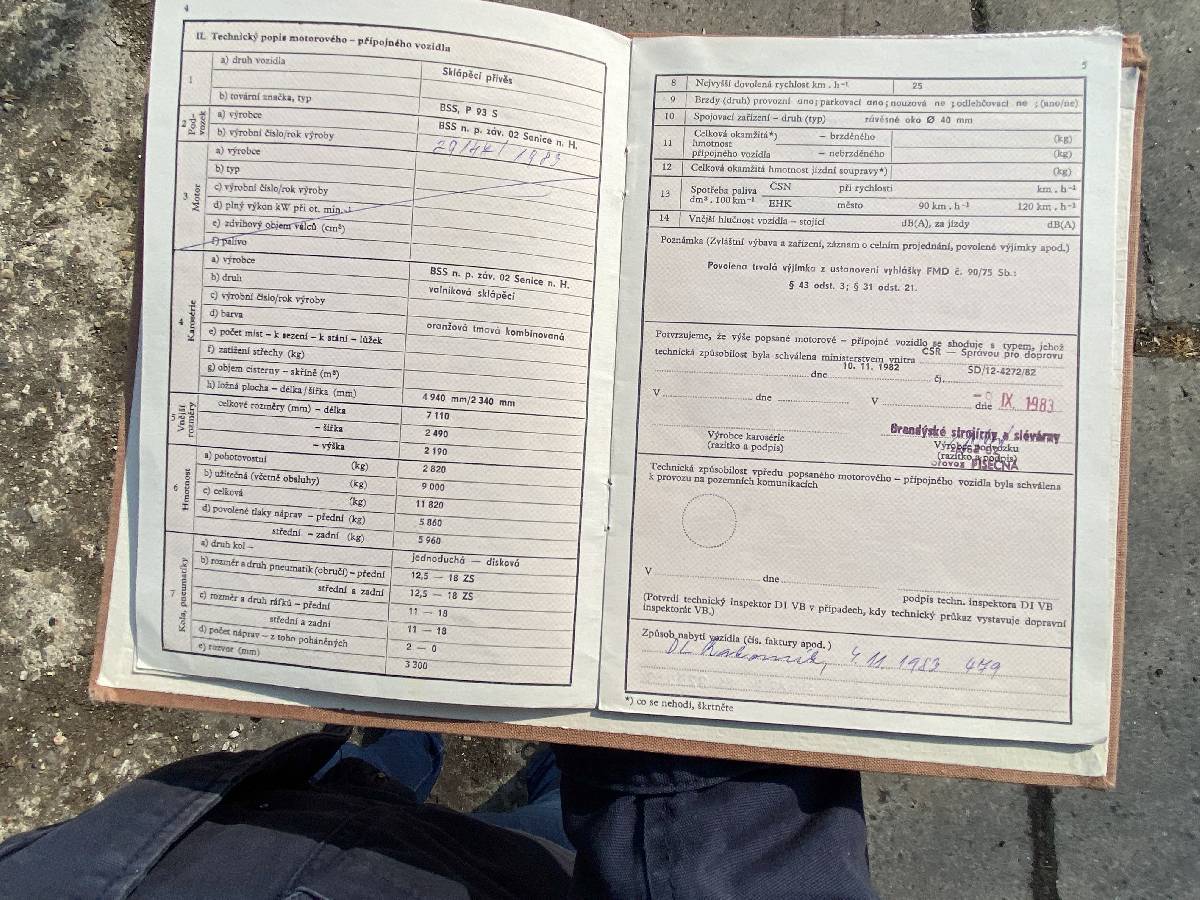 4
II. Technický popis motorového – přípojného vozidla
1 a) druh vozidla Sklápěcí přívěs
b) tovární značka, typ BSS, P 93 S
2 Pod-vozek a) výrobce BSS n. p. záv. 02 Senice n. H.
b) výrobní číslo/rok výroby 1983
3 Motor a) výrobce
b) typ
c) výrobní číslo/rok výroby
d) plný výkon kW při ot. min.
e) zdvihový objem válců (cm³)
f) palivo
4 Karosérie a) výrobce BSS n. p. záv. 02 Senice n. H.
b) druh valníková sklápěcí
c) výrobní číslo/rok výroby
d) barva oranžová tmavá kombinovaná
e) počet míst – k sezení – k stání – lůžek
f) zatížení střechy (kg)
g) objem cisterny – skříně (m³)
h) ložná plocha – délka/šířka (mm) 4 940 mm/2 340 mm
5 Vnější rozměry celkové rozměry (mm) – délka 7 110
– šířka 2 490
– výška 2 190
6 Hmotnost a) pohotovostní (kg) 2 820
b) užitečná (včetně obsluhy) (kg) 9 000
c) celková (kg) 11 820
d) povolené tlaky náprav – přední (kg) 5 860
střední – zadní (kg) 5 960
7 Kola, pneumatiky a) druh kol – jednoduchá — disková
b) rozměr a druh pneumatik (obručí) – přední 12,5 — 18 ZS
střední a zadní 12,5 — 18 ZS
c) rozměr a druh ráfků – přední 11 — 18
střední a zadní 11 — 18
d) počet náprav – z toho poháněných 2 — 0
e) rozvor (mm) 3 300
5
8 Nejvyšší dovolená rychlost km . h⁻¹ 25
9 Brzdy (druh) provozní ano; parkovací ano; nouzová ne ; odlehčovací ne ; (ano/ne)
10 Spojovací zařízení – druh (typ) závěsné oko Ø 40 mm
11 Celková okamžitá*) – brzděného (kg)
hmotnost
přípojného vozidla – nebrzděného (kg)
12 Celková okamžitá hmotnost jízdní soupravy*) (kg)
13 Spotřeba paliva ČSN při rychlosti km . h⁻¹
dm³ . 100 km⁻¹ EHK město 90 km . h⁻¹ 120 km . h⁻¹
14 Vnější hlučnost vozidla – stojící dB(A), za jízdy dB(A)
Poznámka (Zvláštní výbava a zařízení, záznam o celním projednání, povolené výjimky apod.)
Povolena trvalá výjimka z ustanovení vyhlášky FMD č. 90/75 Sb.:
§ 43 odst. 3; § 31 odst. 21.
Potvrzujeme, že výše popsané motorové – přípojné vozidlo se shoduje s typem, jehož
technická způsobilost byla schválena ministerstvem vnitra ČSR — Správou pro dopravu
dne 10. 11. 1982 čj. SD/12-4272/82
V dne V dne IX. 1983
Brandýské strojírny a slévárny
Výrobce karosérie Výrobce podvozku
(razítko a podpis) (razítko a podpis)
provoz PÍSEČNÁ
Technická způsobilost vpředu popsaného motorového – přípojného vozidla byla schválena
k provozu na pozemních komunikacích
V dne
podpis techn. inspektora DI VB
(Potvrdí technický inspektor DI VB v případech, kdy technický průkaz vystavuje dopravní
inspektorát VB.)
Způsob nabytí vozidla (čís. faktury apod.)
4. 11. 1983 479
*) co se nehodí, škrtněte